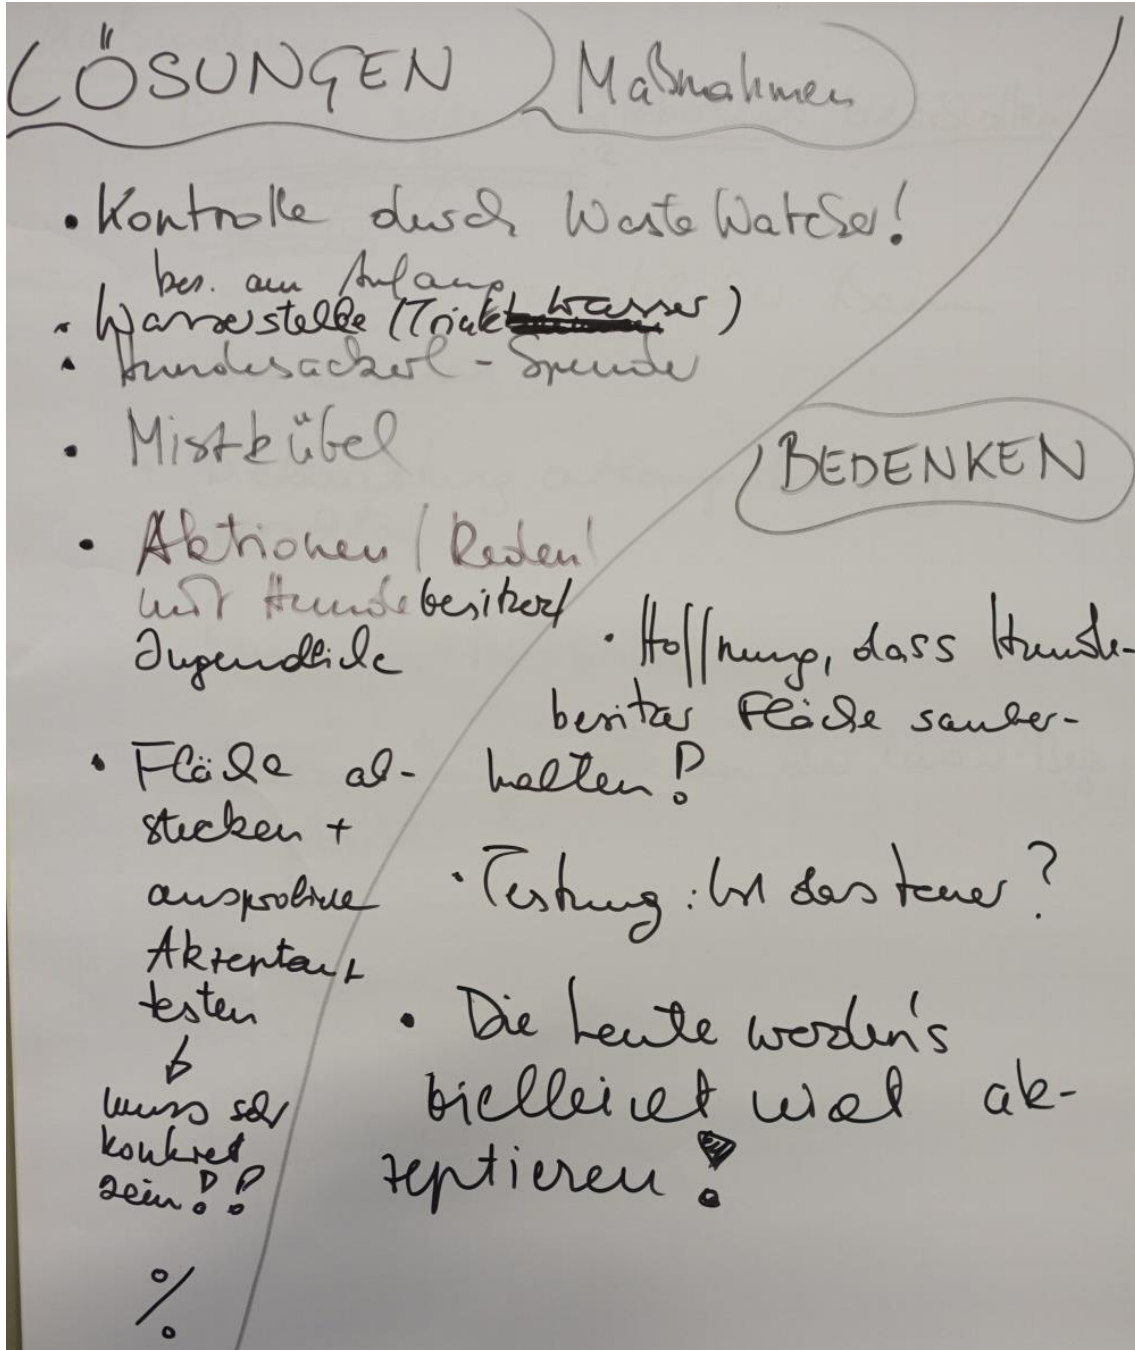 LÖSUNGEN
Maßnahmen
• Kontrolle durch Waste Watcher!
bes. am Anfang
• Wasserstelle (Trinkwasser)
• Hundesackerl-Spender
• Mistkübel
• Aktionen / Reden!
mit Hundebesitzer/
Jugendliche
• Fläche ab-
stecken +
ausprobieren
Akzeptanz
testen
↓
muss sehr
konkret
sein!!
%
BEDENKEN
• Hoffnung, dass Hunde-
besitzer Fläche sauber-
halten!
• Testung: Ist das teuer?
• Die Leute werden's
vielleicht nicht ak-
zeptieren!